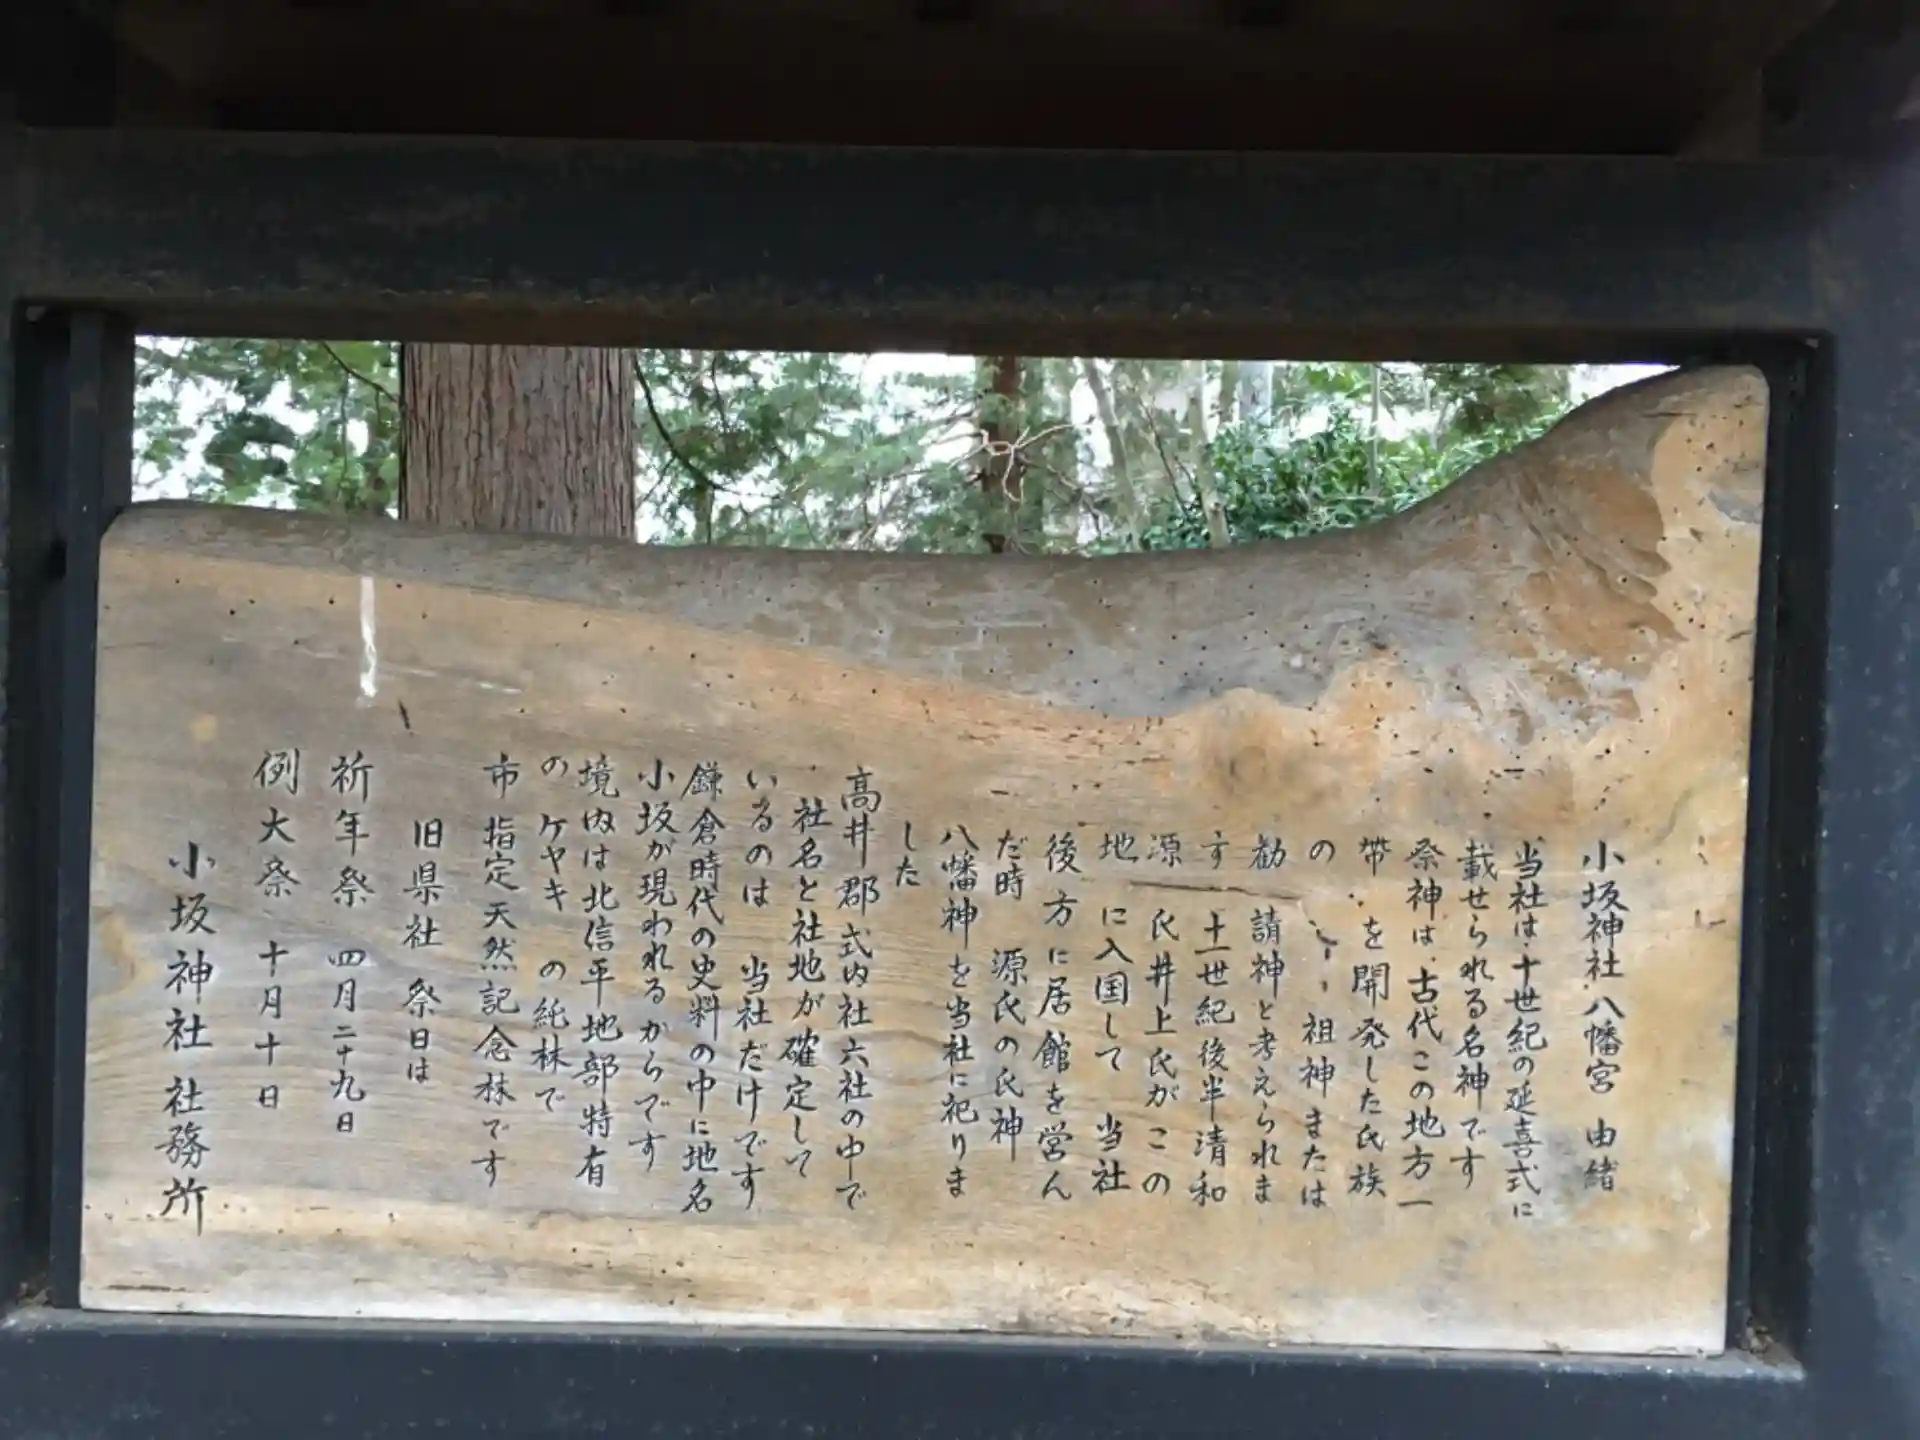 小坂神社八幡宮 由緒
当社は十世紀の延喜式に
載せられる名神です
祭神は古代この地方一
帯を開発した氏族
の 祖神または
勧請神と考えられま
す 十一世紀後半清和
源氏井上氏がこの
地に入国して 当社
後方に居館を営ん
だ時 源氏の氏神
八幡神を当社に祀りま
した
高井郡式内社六社の中で
社名と社地が確定して
いるのは 当社だけです
鎌倉時代の史料の中に地名
小坂が現われるからです
境内は北信平地部特有
のケヤキの純林で
市指定天然記念林です
旧県社 祭日は
祈年祭 四月二十九日
例大祭 十月十日
小坂神社社務所